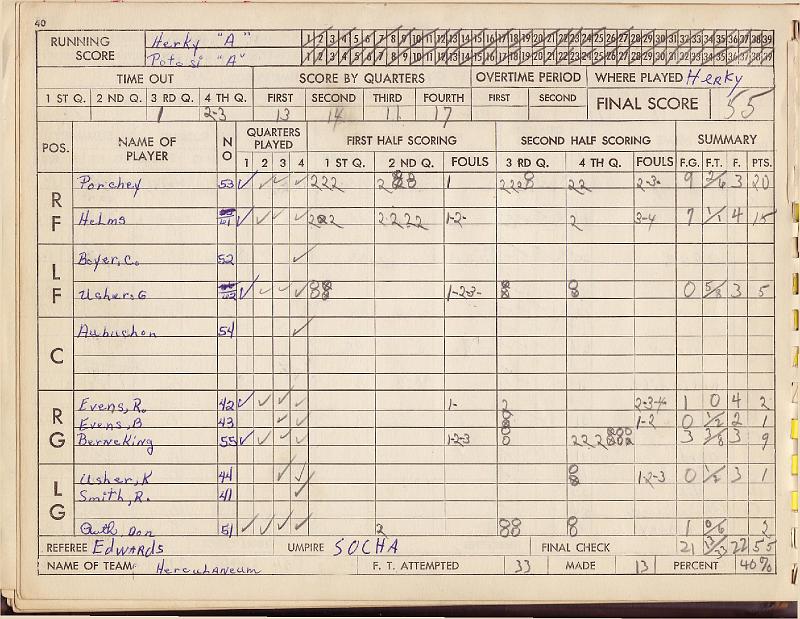 40
RUNNING SCORE Herky "A" 1 2 3 4 5 6 7 8 9 10 11 12 13 14 15 16 17 18 19 20 21 22 23 24 25 26 27 28 29 30 31 32 33 34 35 36 37 38 39
Potosi "A" 1 2 3 4 5 6 7 8 9 10 11 12 13 14 15 16 17 18 19 20 21 22 23 24 25 26 27 28 29 30 31 32 33 34 35 36 37 38 39
TIME OUT SCORE BY QUARTERS OVERTIME PERIOD WHERE PLAYED Herky
1 ST Q. 2 ND Q. 3 RD Q. 4 TH Q. FIRST SECOND THIRD FOURTH FIRST SECOND FINAL SCORE 55
1 2-3 13 14 11 17
POS. NAME OF PLAYER NO QUARTERS PLAYED FIRST HALF SCORING SECOND HALF SCORING SUMMARY
1 2 3 4 1 ST Q. 2 ND Q. FOULS 3 RD Q. 4 TH Q. FOULS F.G. F.T. F. PTS.
RF Porchey 53 ✓ ✓ ✓ ✓ 222 1 22 2-3- 9 2/6 3 20
Helms ✓ ✓ ✓ ✓ 2222 1-2- 2 3-4 7 1/1 4 15
LF Boyer, C. 52 ✓
Usher, G ✓ ✓ ✓ ✓ 1-2-3- 0 5/8 3 5
C Aubuchon 54 ✓
RG Evens, R. 42 ✓ ✓ ✓ 1- 2 2-3-4 1 0 4 2
Evens, B 43 ✓ ✓ 1-2 0 1/2 2 1
Berneking 55 ✓ ✓ ✓ ✓ 1-2-3 222 3 3/8 3 9
LG Usher, K 44 ✓ ✓ 1-2-3 0 1/2 3 1
Smith, R. 41 ✓
Don 51 ✓ ✓ ✓ ✓ 2 1 0/6 2
REFEREE Edwards UMPIRE SOCHA FINAL CHECK 21 13/33 22 55
NAME OF TEAM Herculaneum F. T. ATTEMPTED 33 MADE 13 PERCENT 40%